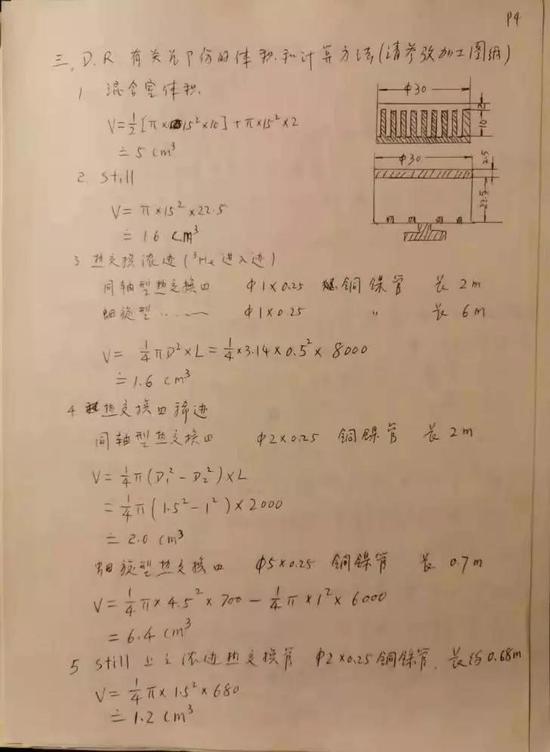 P4
三、D.R 有关部份的体积和计算方法(请参改加工图纸)
1 混合室体积
V=½[π×15²×10]+π×15²×2
≐ 5 cm³
φ30
2
10
2. Still
V= π×15²×22.5
≐ 16 cm³
φ30
2.5
22.5
3 热交换浓边(³He进入边)
同轴型热交换口 φ1×0.25 铜镍管 长 2m
细旋型 ...... φ1×0.25 〃 长 6m
V= ¼πD²×L=¼×3.14×0.5²×8000
≐1.6 cm³
4 热交换口稀边
同轴型热交换口 φ2×0.25 铜镍管 长 2m
V=¼π(D₁²-D₂²)×L
=¼π(1.5²-1²)×2000
≐2.0 cm³
旋型热交换口 φ5×0.25 铜镍管 长 0.7m
V=¼π×4.5²×700-¼π×1²×6000
=6.4 cm³
5 Still 上之浓边热交换管 φ2×0.25铜镍管,长约0.68m
V=¼π×1.5²×680
≐1.2 cm³